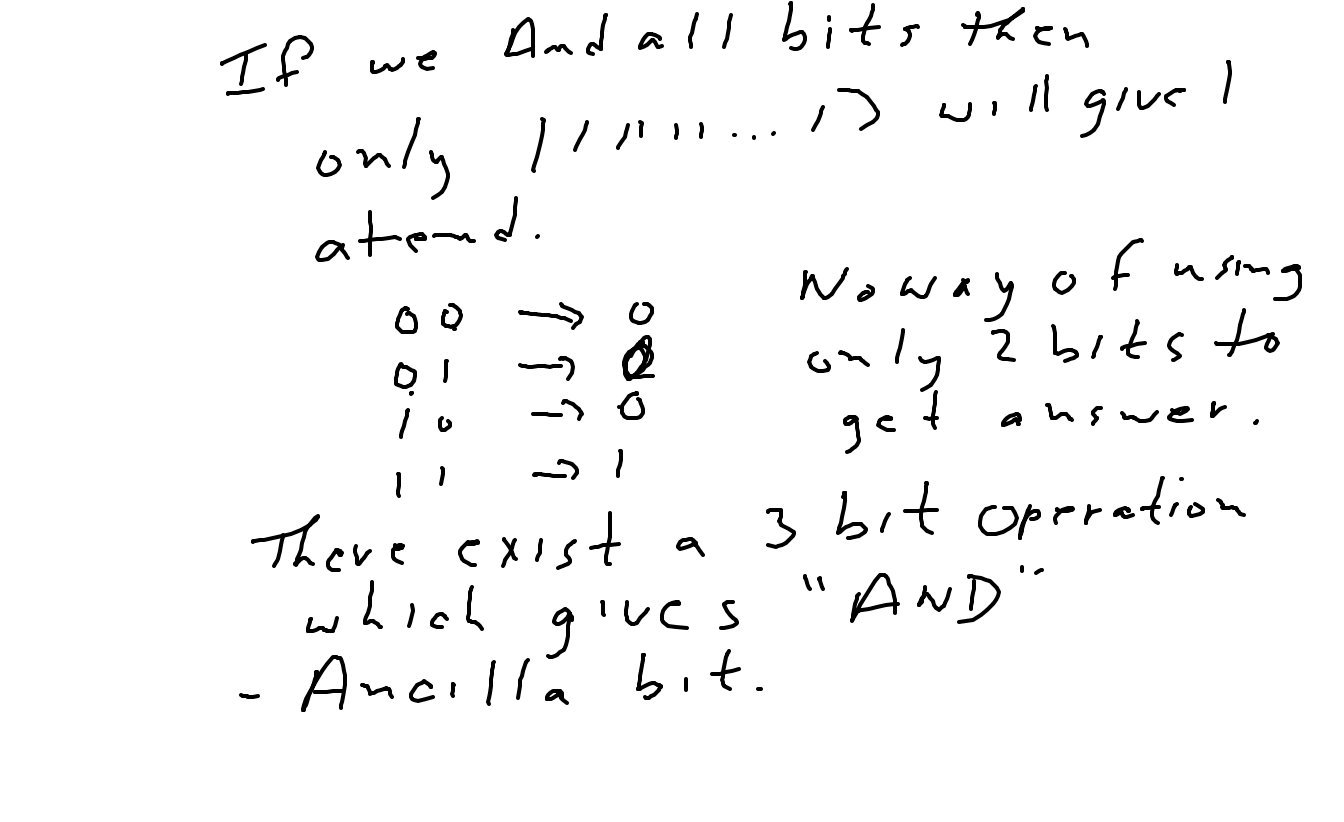 If we And all bits then
only 1 1 1 1 1 1 1 ... 1> will give 1
at end.
00 → 0
01 → 0
10 → 0
11 → 1
No way of using
only 2 bits to
get answer.
There exist a 3 bit operation
which gives "AND"
- Ancilla bit.